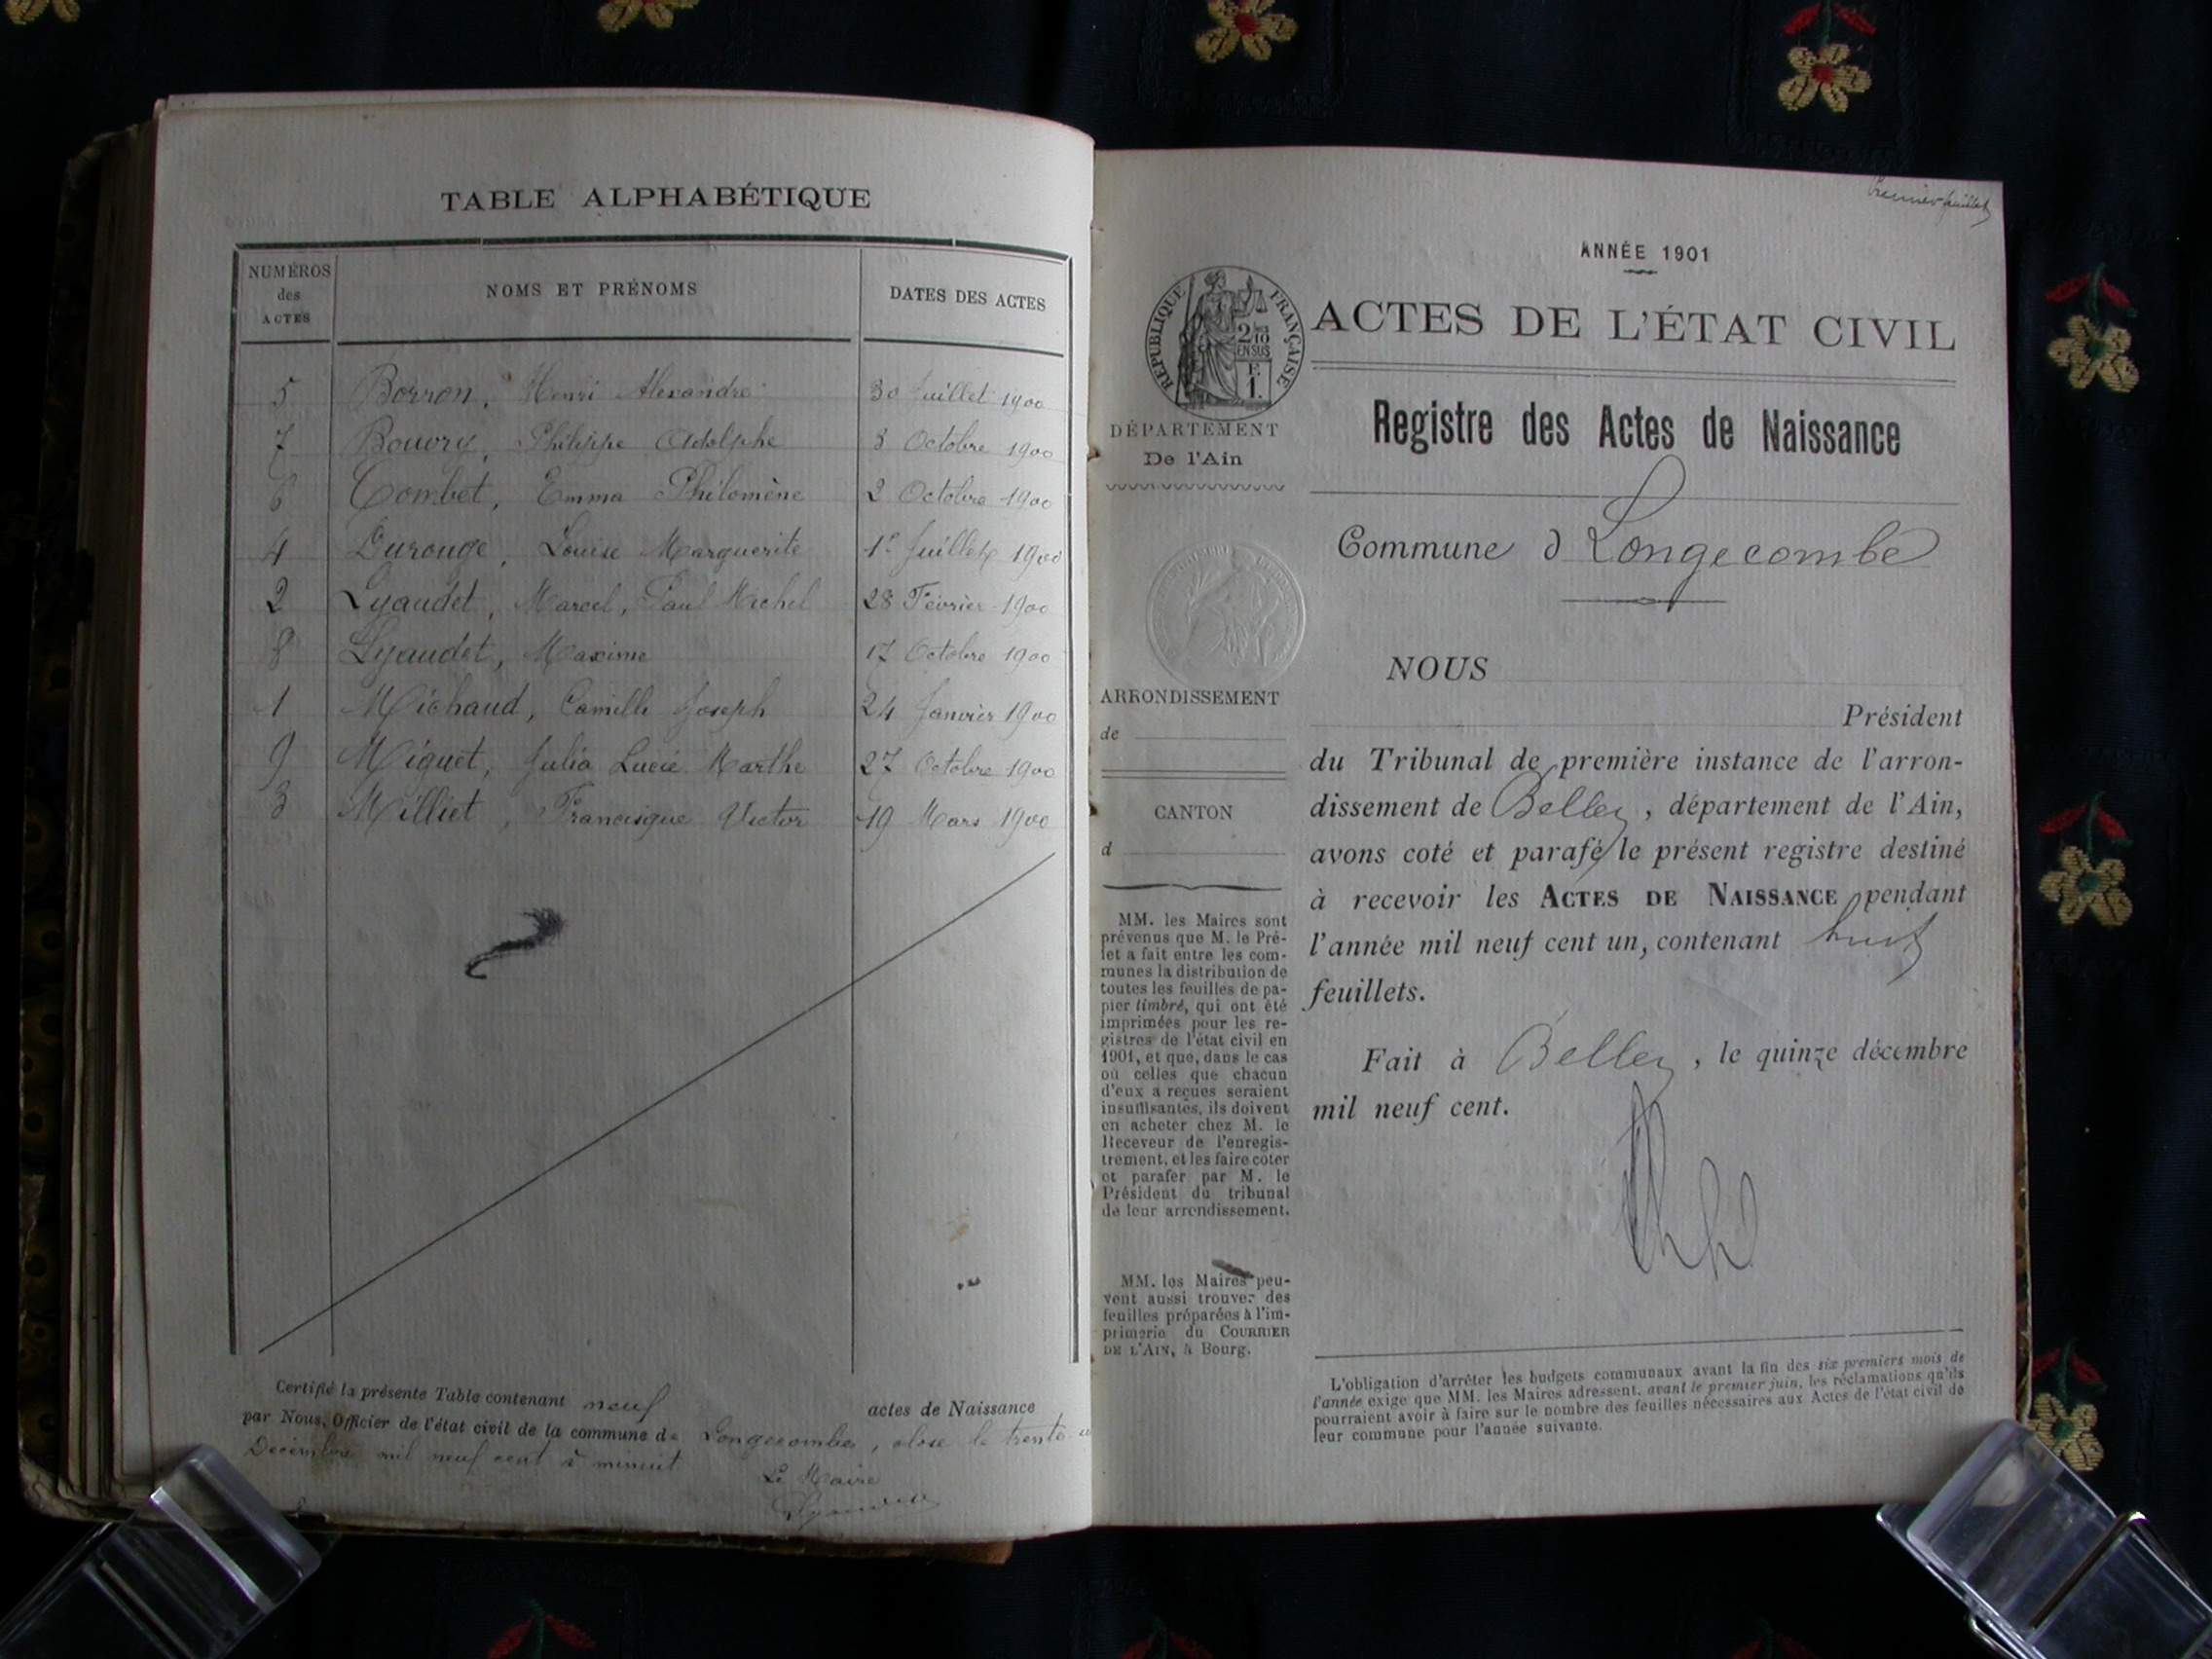 TABLE ALPHABÉTIQUE
NUMÉROS
des
ACTES
NOMS ET PRÉNOMS
DATES DES ACTES
5 Borron, Henri Alexandre 30 Juillet 1900
7 Bouvry, Philippe Adolphe 3 Octobre 1900
6 Combet, Emma Philomène 2 Octobre 1900
4 Durouge, Louise Marguerite 1er Juillet 1900
2 Lyaudet, Marcel, Paul Michel 28 Février 1900
8 Lyaudet, Maxime 17 Octobre 1900
1 Michaud, Camille Joseph 24 Janvier 1900
9 Miguet, Julia Lucie Marthe 27 Octobre 1900
3 Milliet, Francisque Victor 19 Mars 1900
Certifié la présente Table contenant neuf actes de Naissance
par Nous, Officier de l'état civil de la commune de Longecombe, close le trente
Décembre mil neuf cent à minuit
Le Maire
Premier feuillet
ANNÉE 1901
RÉPUBLIQUE FRANÇAISE
2/10
EN SUS
F.
1.
ACTES DE L'ÉTAT CIVIL
DÉPARTEMENT
De l'Ain
Registre des Actes de Naissance
Commune d Longecombe
ARRONDISSEMENT
de
CANTON
d
MM. les Maires sont
prévenus que M. le Pré-
fet a fait entre les com-
munes la distribution de
toutes les feuilles de pa-
pier timbré, qui ont été
imprimées pour les re-
gistres de l'état civil en
1901, et que, dans le cas
où celles que chacun
d'eux a reçues seraient
insuffisantes, ils doivent
en acheter chez M. le
Receveur de l'enregis-
trement, et les faire coter
et parafer par M. le
Président du tribunal
de leur arrondissement.
MM. les Maires peu-
vent aussi trouver des
feuilles préparées à l'im-
primerie du COURRIER
DE L'AIN, à Bourg.
NOUS
Président
du Tribunal de première instance de l'arron-
dissement de Belley, département de l'Ain,
avons coté et parafé le présent registre destiné
à recevoir les ACTES DE NAISSANCE pendant
l'année mil neuf cent un, contenant huit
feuillets.
Fait à Belley, le quinze décembre
mil neuf cent.
L'obligation d'arrêter les budgets communaux avant la fin des six premiers mois de
l'année exige que MM. les Maires adressent, avant le premier juin, les réclamations qu'ils
pourraient avoir à faire sur le nombre des feuilles nécessaires aux Actes de l'état civil de
leur commune pour l'année suivante.